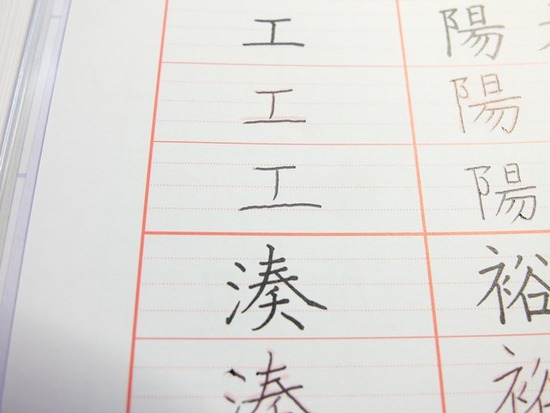 工 陽
工 陽
工 陽
湊 裕
湊